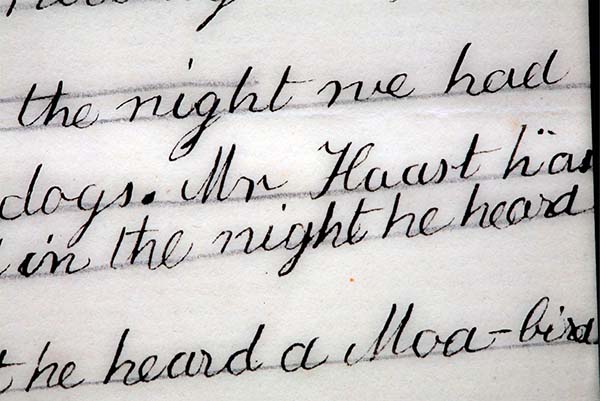 the night we had
dogs. Mr Haast has
in the night he heard
he heard a Moa-bird